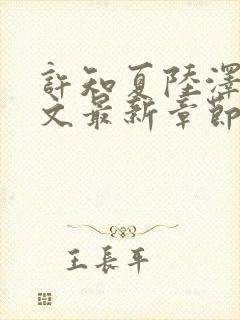 許知夏陸澤
文最新章節
王長平